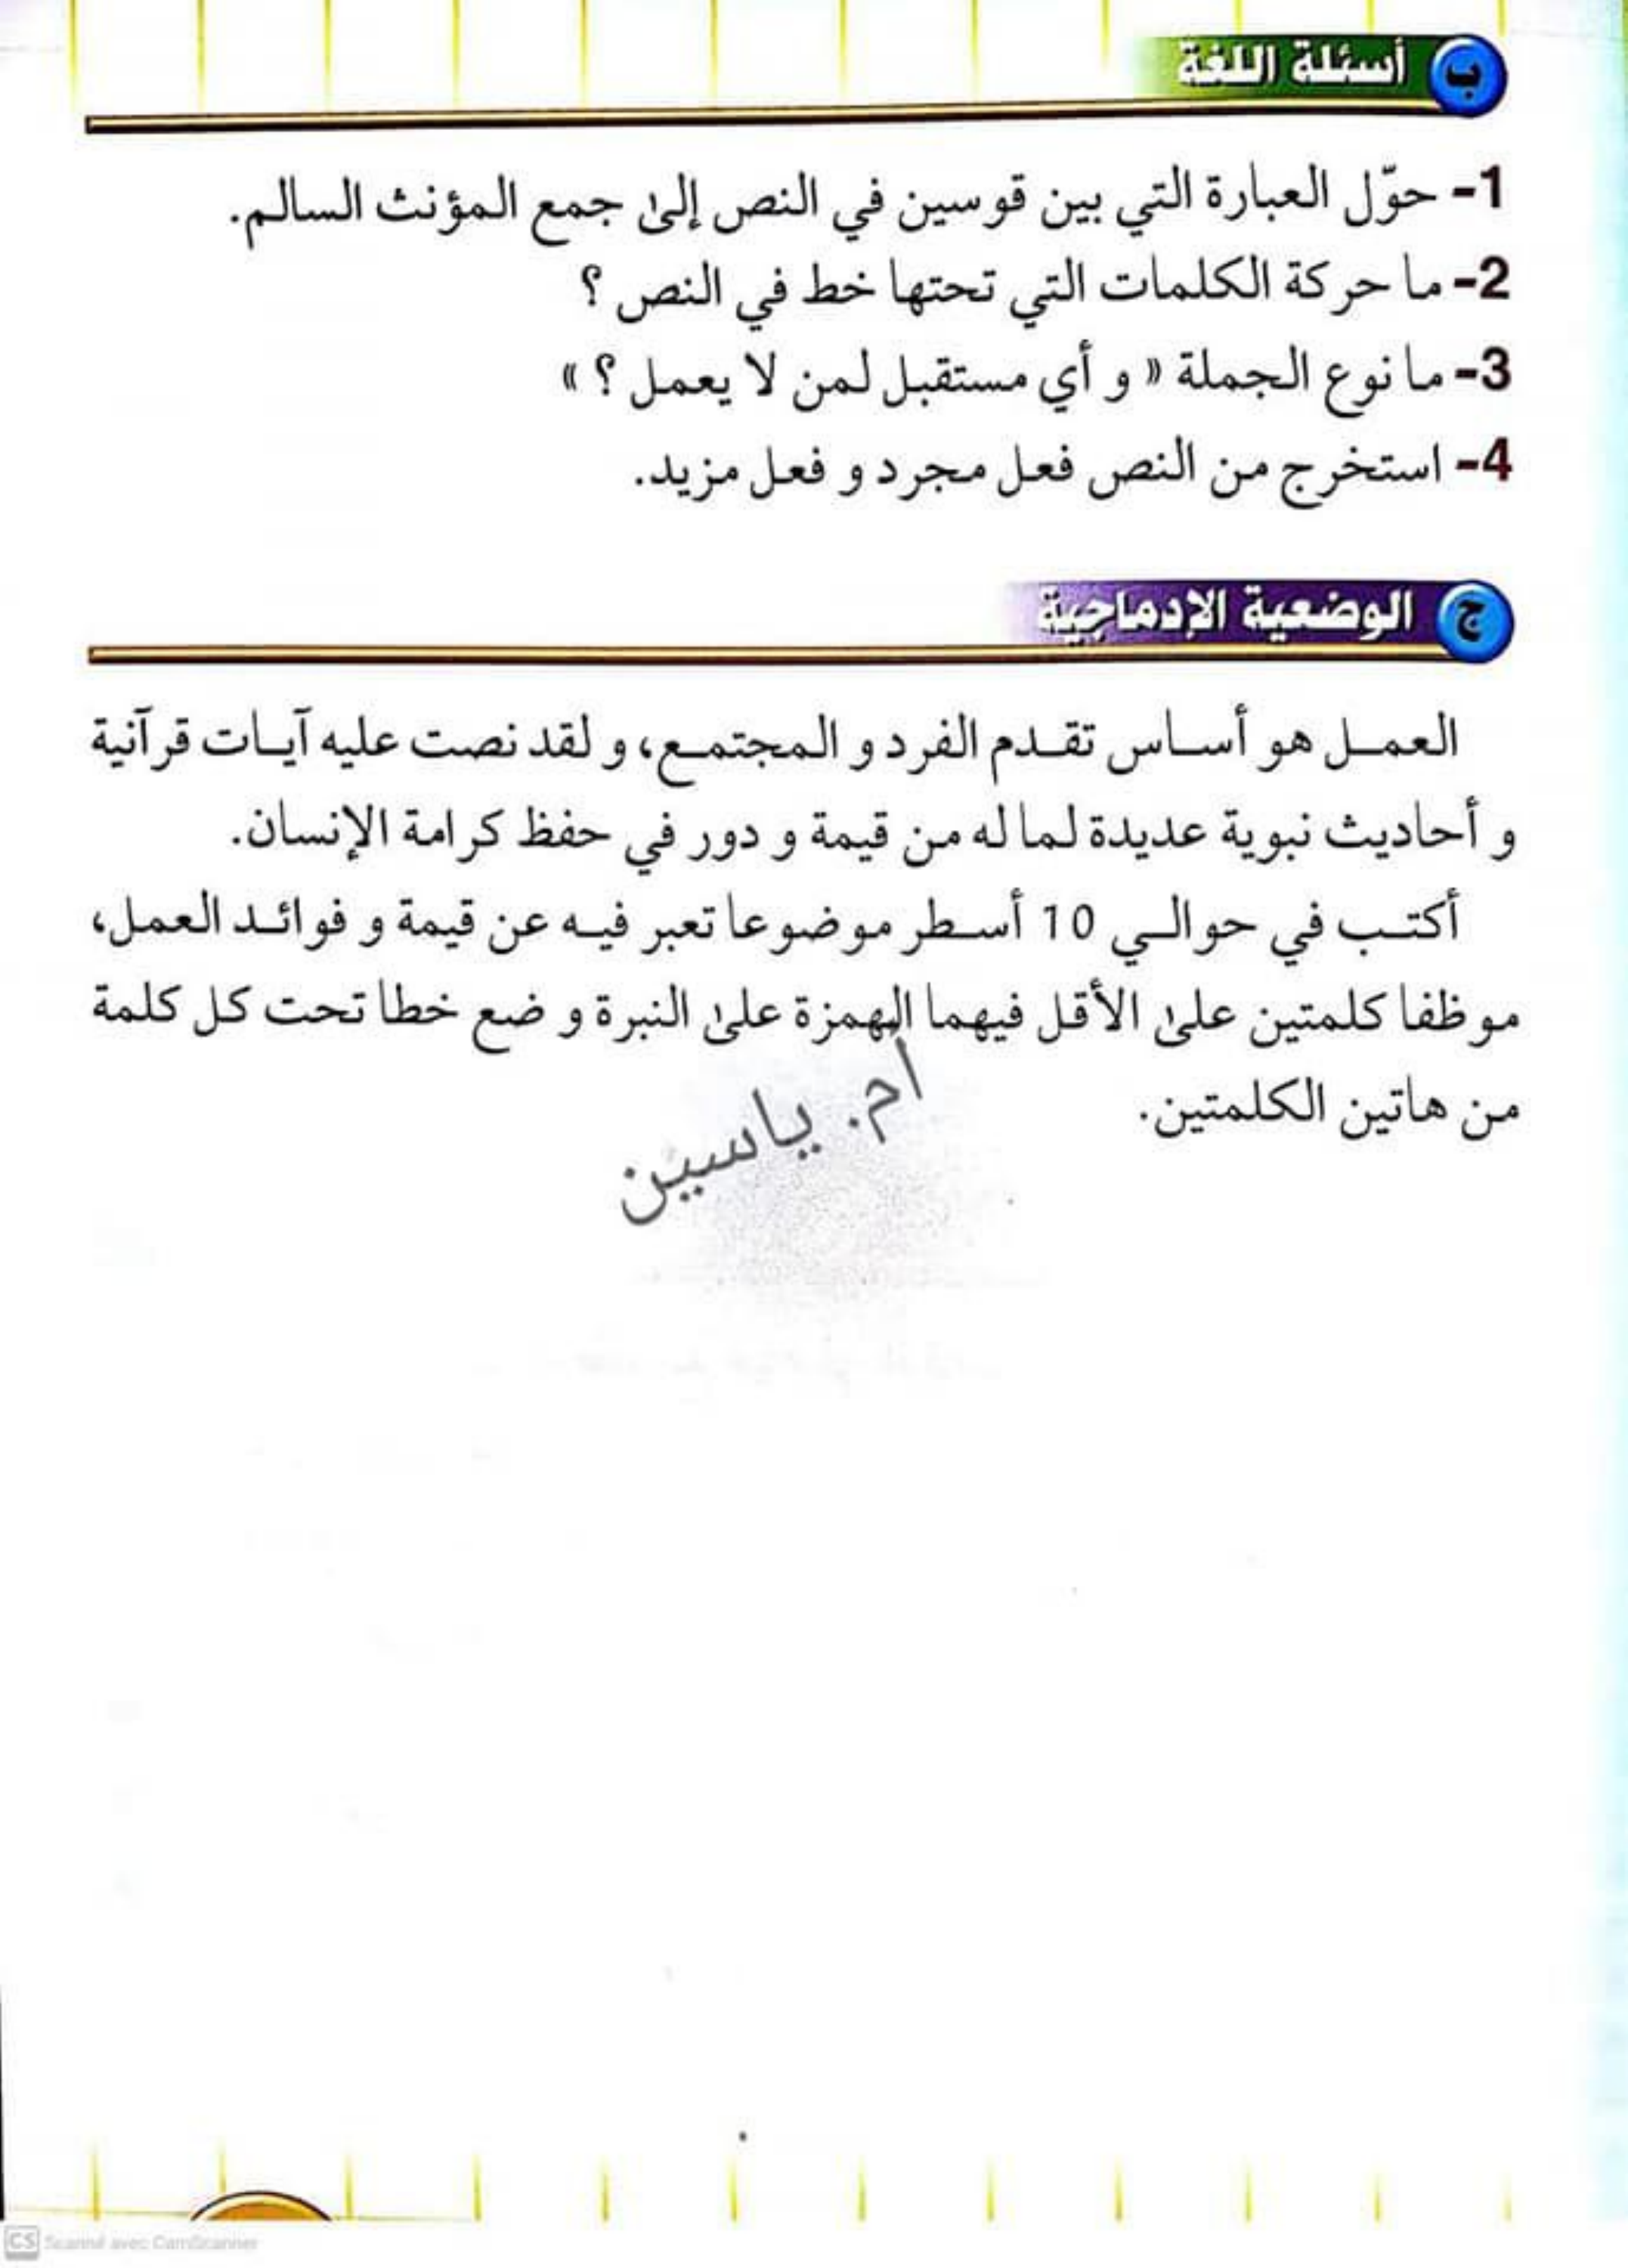 ب أسئلة اللغة
1- حوّل العبارة التي بين قوسين في النص إلى جمع المؤنث السالم.
2- ما حركة الكلمات التي تحتها خط في النص ؟
3- ما نوع الجملة « و أي مستقبل لمن لا يعمل ؟ »
4- استخرج من النص فعل مجرد و فعل مزيد.
ج الوضعية الإدماجية
العمل هو أساس تقدم الفرد و المجتمع، و لقد نصت عليه آيات قرآنية
و أحاديث نبوية عديدة لما له من قيمة و دور في حفظ كرامة الإنسان.
أكتب في حوالي 10 أسطر موضوعا تعبر فيه عن قيمة و فوائد العمل،
موظفا كلمتين على الأقل فيهما الهمزة على النبرة و ضع خطا تحت كل كلمة
من هاتين الكلمتين.
أم. ياسين
CS Scanné avec CamScanner